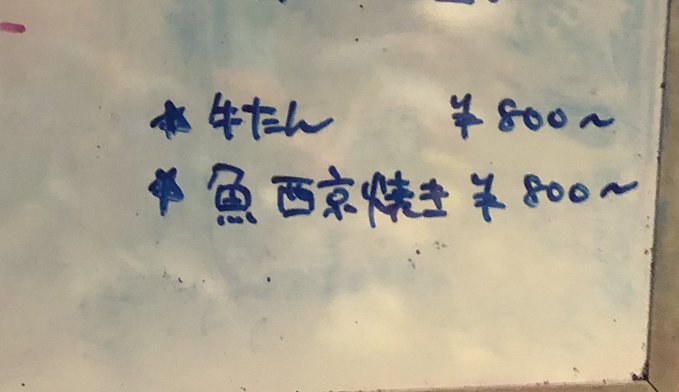 * 牛たん ¥800~
* 魚西京焼き ¥800~